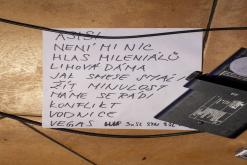 ASISI
NENÍ MI NIC
HLAS MILENIÁLŮ
LIHOVÁ DÁMA
JAK SMESE
ŽÍT MINULOST
MÁME SE RÁDI
KONFLIKT
VODNICE
VEGAS